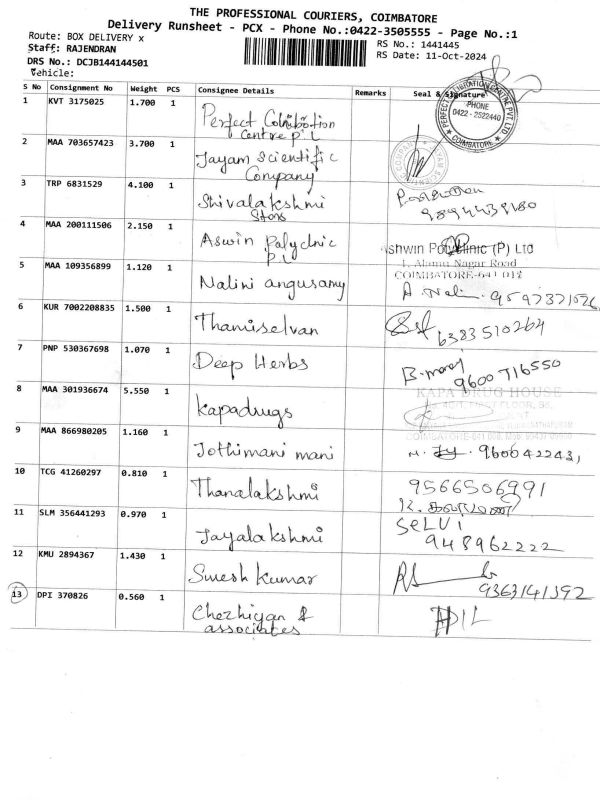 THE PROFESSIONAL COURIERS, COIMBATORE
Delivery Runsheet - PCX - Phone No.:0422-3505555 - Page No.:1
Route: BOX DELIVERY x
RS No.: 1441445
Staff: RAJENDRAN
RS Date: 11-Oct-2024
DRS No.: DCJB144144501
Vehicle:
S No Consignment No Weight PCS Consignee Details Remarks Seal & Signature
PHONE
0422 - 2522440
COIMBATORE
1 KVT 3175025 1.700 1 Perfect
Centre p.L
2 MAA 703657423 3.700 1 Jayam Scientific
Company
3 TRP 6831529 4.100 1 Shivalakshmi
Stors
4 MAA 200111506 2.150 1 Aswin Polyclnic
P.L
Ashwin Polyclinic (P) Ltd
1, Alamu Nagar Road
COIMBATORE-641 012
5 MAA 109356899 1.120 1 Nalini angusamy
6 KUR 7002208835 1.500 1 Thamiselvan 6383510264
7 PNP 530367698 1.070 1 Deep Herbs 9600716550
8 MAA 301936674 5.550 1 Kapadrugs
KAPA DRUG HOUSE
9 MAA 866980205 1.160 1 Jothimani mani
10 TCG 41260297 0.810 1 Thanalakshmi 9566506991
11 SLM 356441293 0.970 1 Jayalakshmi SELVI
948962222
12 KMU 2894367 1.430 1 Suresh Kumar 9363141392
13 DPI 370826 0.560 1 Chezhiyan &
associates